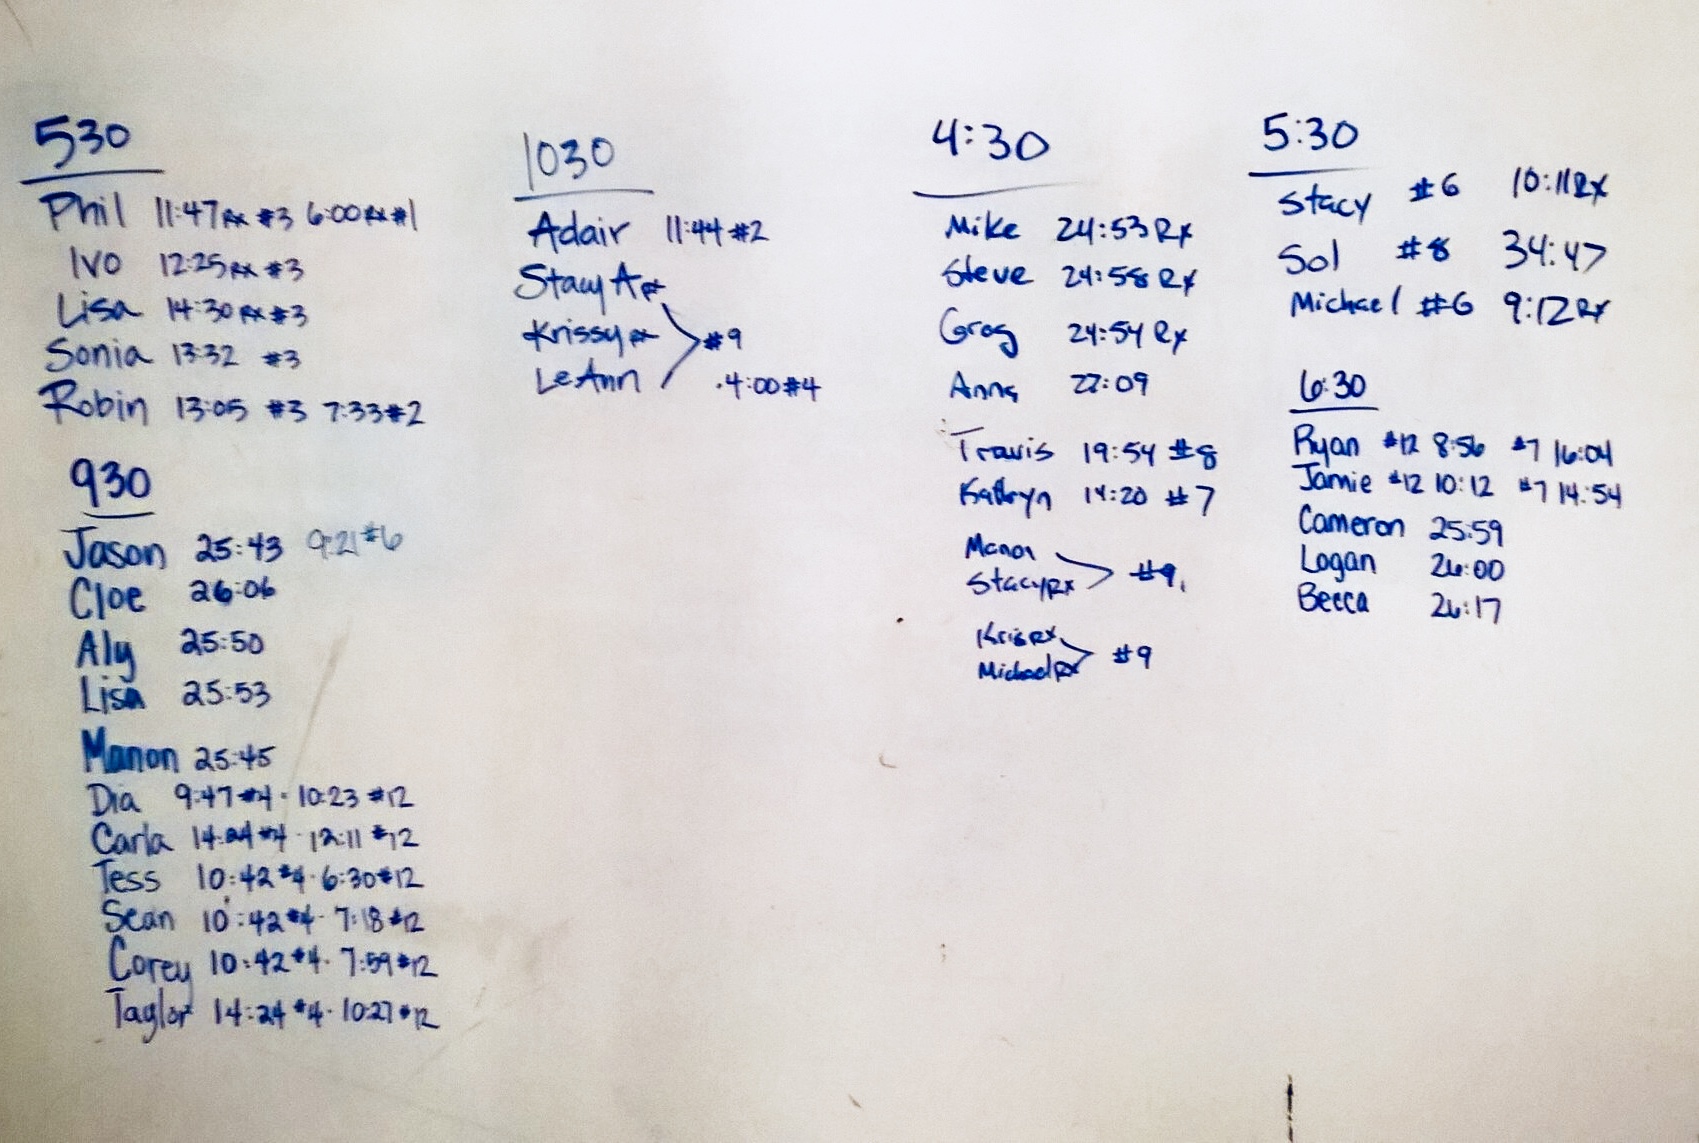 530
Phil 11:47 Rx #3 6:00 Rx #1
Ivo 12:25 Rx #3
Lisa 14:30 Rx #3
Sonia 13:32 #3
Robin 13:05 #3 7:33 #2
930
Jason 25:43 9:21 #6
Cloe 26:06
Aly 25:50
Lisa 25:53
Manon 25:45
Dia 9:47 #4 · 10:23 #12
Carla 14:24 #4 · 12:11 #12
Tess 10:42 #4 · 6:30 #12
Sean 10:42 #4 · 7:18 #12
Corey 10:42 #4 · 7:59 #12
Taylor 14:24 #4 · 10:27 #12
1030
Adair 11:44 #2
Stacy A Rx
Krissy Rx #9
LeAnn · 4:00 #4
4:30
Mike 24:53 Rx
Steve 24:58 Rx
Greg 24:54 Rx
Anna 22:09
Travis 19:54 #8
Kathryn 14:20 #7
Manon
Stacy Rx #9
Kris Rx
Michael Rx #9
5:30
Stacy #6 10:11 Rx
Sol #8 34:47
Michael #6 9:12 Rx
6:30
Ryan #12 8:56 #7 16:04
Jamie #12 10:12 #7 14:54
Cameron 25:59
Logan 26:00
Becca 26:17